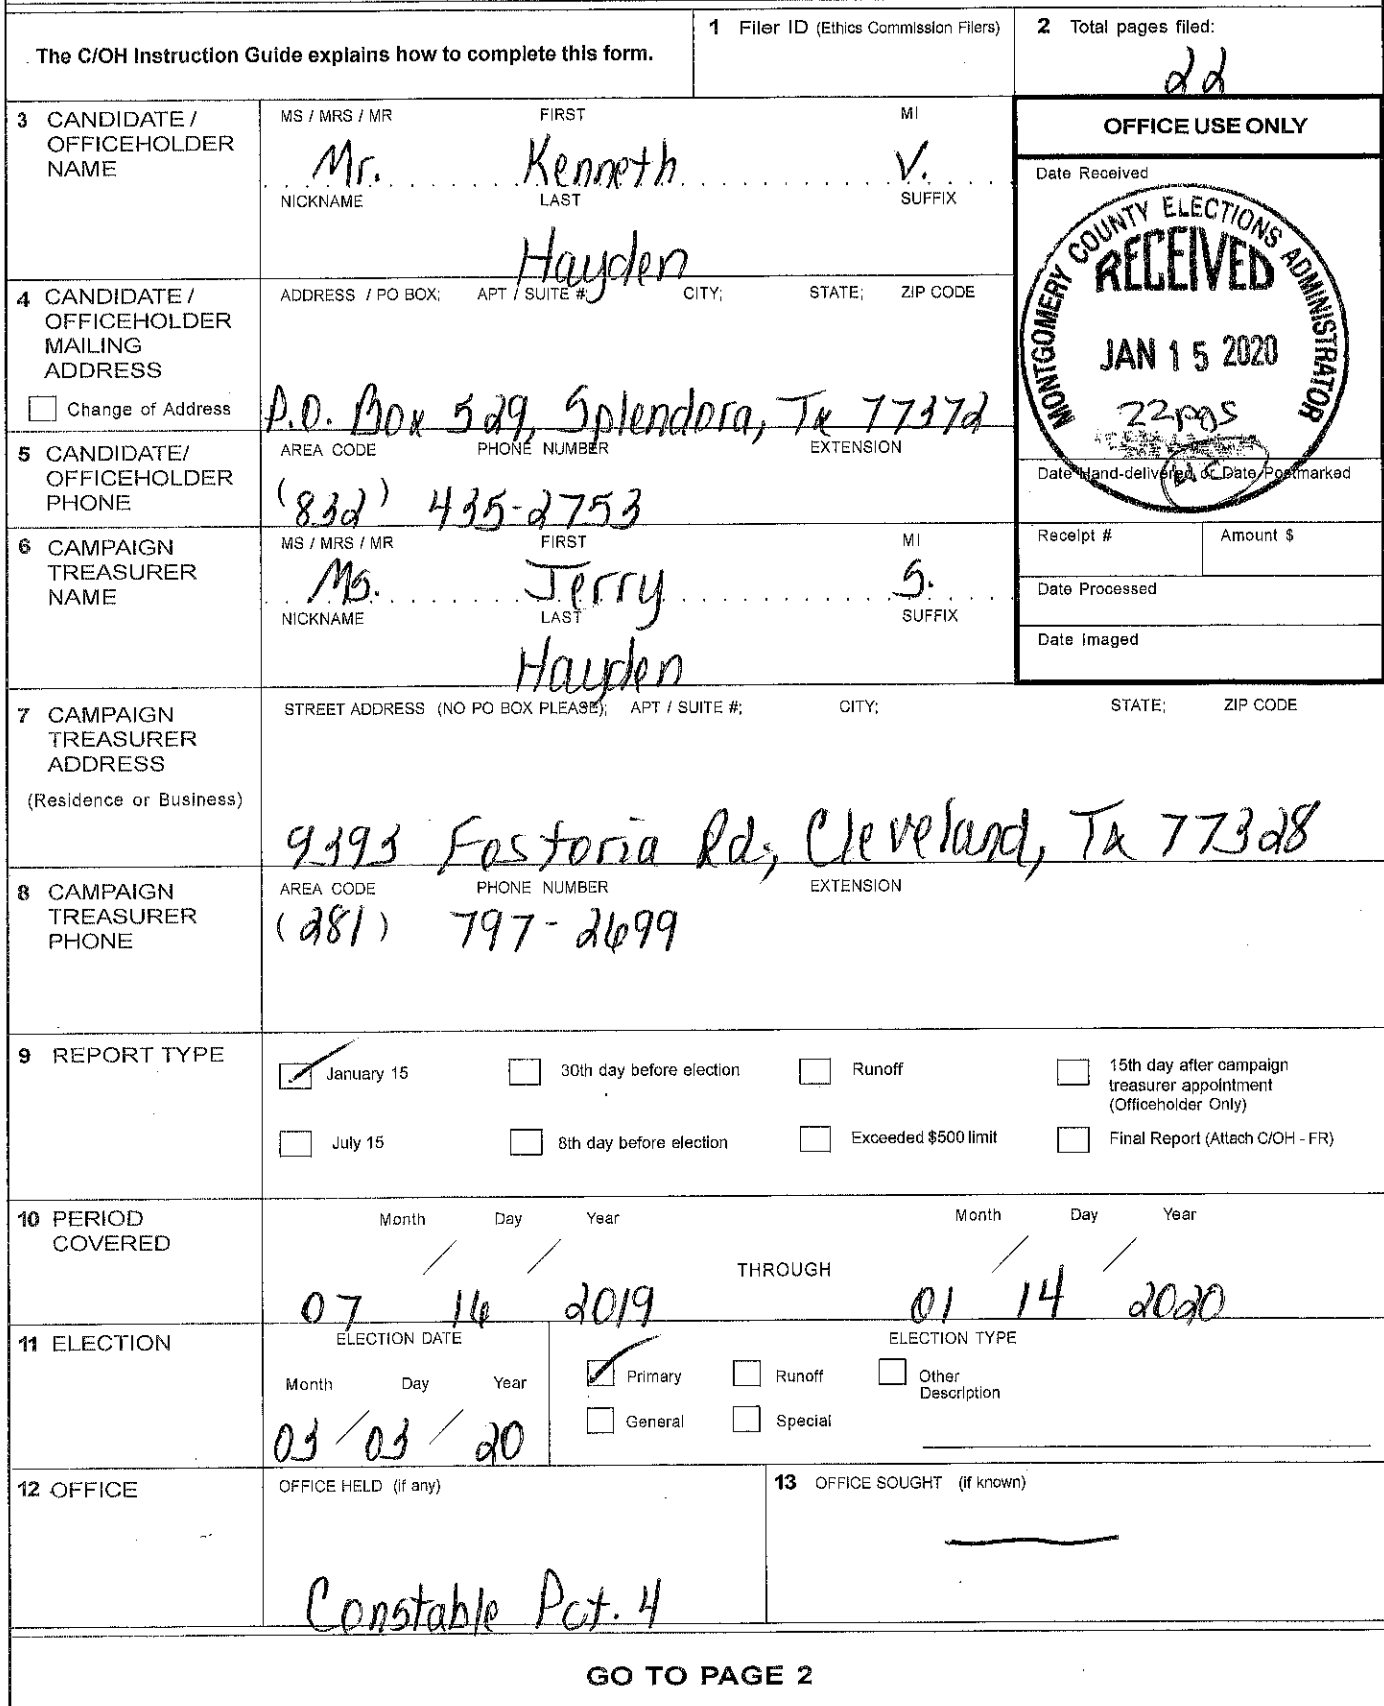 The C/OH Instruction Guide explains how to complete this form.
1 Filer ID (Ethics Commission Filers)
2 Total pages filed:
22
3 CANDIDATE / OFFICEHOLDER NAME
MS / MRS / MR FIRST MI
Mr. Kenneth V.
NICKNAME LAST SUFFIX
Hayden
OFFICE USE ONLY
Date Received
MONTGOMERY COUNTY ELECTIONS ADMINISTRATOR
RECEIVED
JAN 15 2020
22pgs
Date Hand-delivered or Date Postmarked
Receipt # Amount $
Date Processed
Date Imaged
4 CANDIDATE / OFFICEHOLDER MAILING ADDRESS
Change of Address
ADDRESS / PO BOX; APT / SUITE #; CITY; STATE; ZIP CODE
P.O. Box 529, Splendora, Tx 77372
5 CANDIDATE/ OFFICEHOLDER PHONE
AREA CODE PHONE NUMBER EXTENSION
(832) 435-2753
6 CAMPAIGN TREASURER NAME
MS / MRS / MR FIRST MI
Ms. Jerry S.
NICKNAME LAST SUFFIX
Hayden
7 CAMPAIGN TREASURER ADDRESS
(Residence or Business)
STREET ADDRESS (NO PO BOX PLEASE); APT / SUITE #; CITY; STATE; ZIP CODE
9393 Fostoria Rd; Cleveland, Tx 77328
8 CAMPAIGN TREASURER PHONE
AREA CODE PHONE NUMBER EXTENSION
(281) 797-2699
9 REPORT TYPE
January 15 30th day before election Runoff 15th day after campaign treasurer appointment (Officeholder Only)
July 15 8th day before election Exceeded $500 limit Final Report (Attach C/OH - FR)
10 PERIOD COVERED
Month Day Year Month Day Year
07 / 16 / 2019 THROUGH 01 / 14 / 2020
11 ELECTION
ELECTION DATE ELECTION TYPE
Month Day Year
03 / 03 / 20
Primary Runoff Other Description
General Special
12 OFFICE
OFFICE HELD (if any)
Constable Pct. 4
13 OFFICE SOUGHT (if known)
GO TO PAGE 2